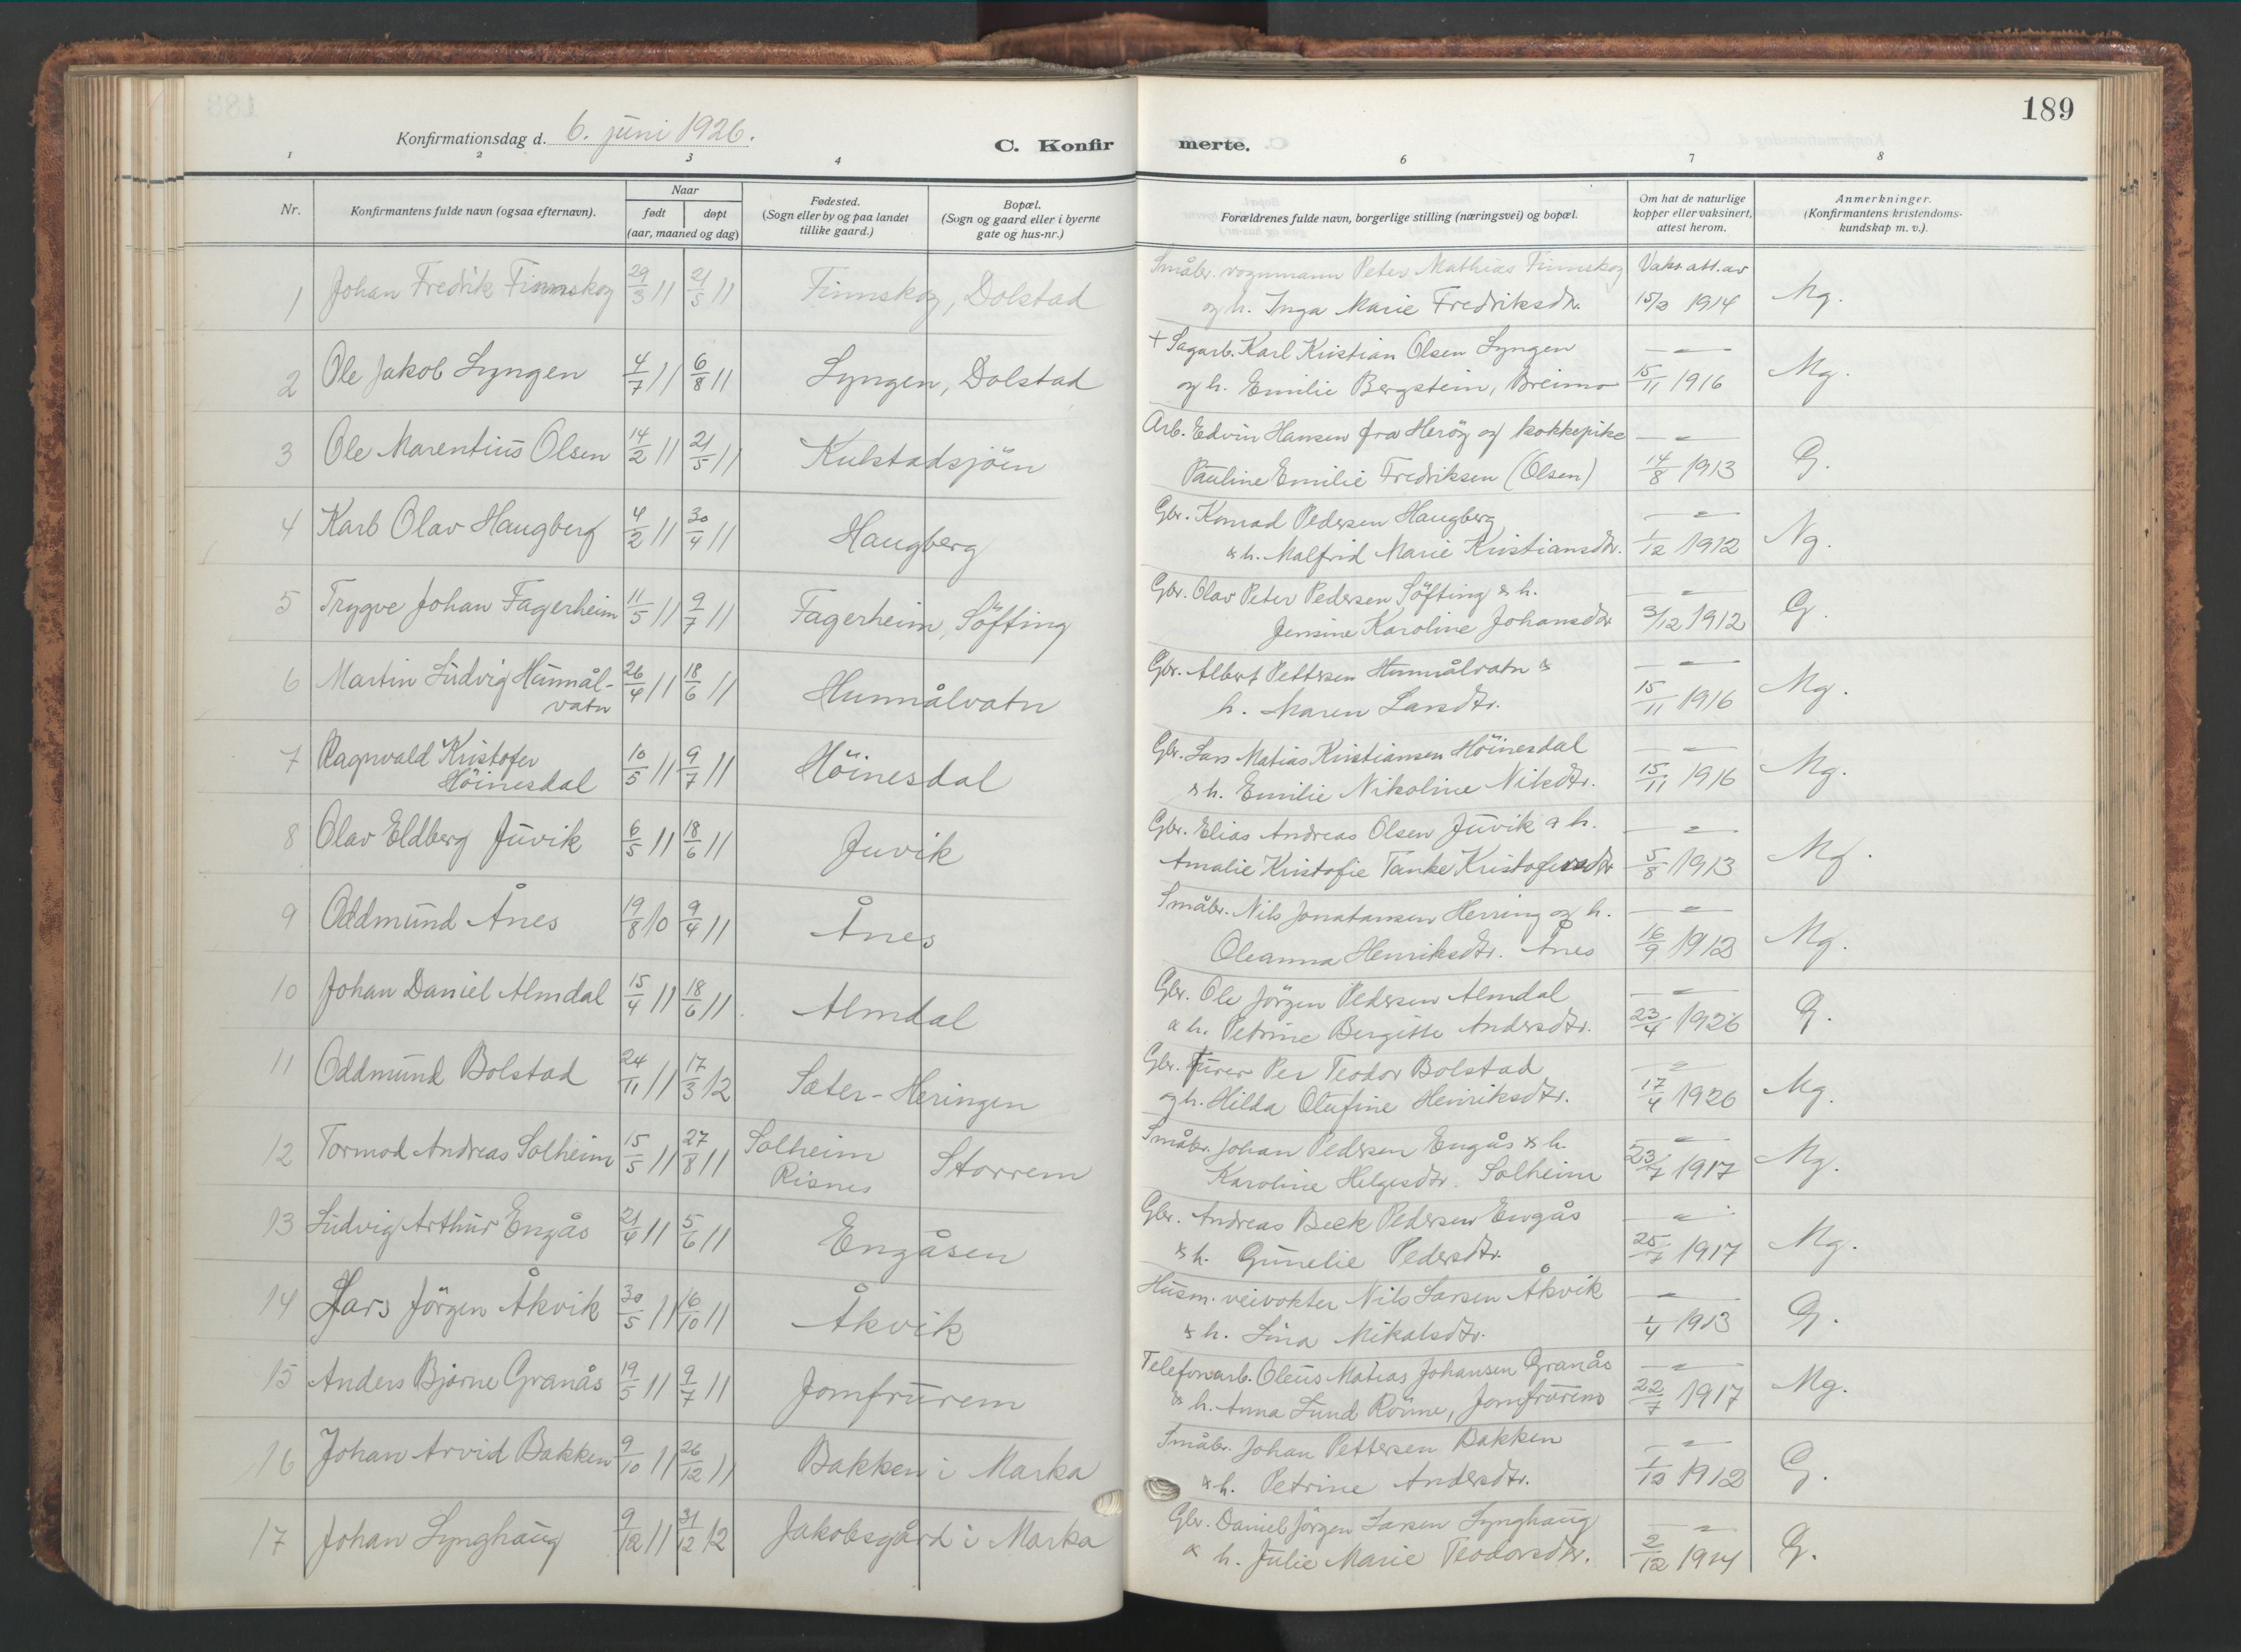 189
Konfirmationsdag d. 6. juni 1926.
C. Konfirmerte.
1 2 3 4 6 7 8
Nr.
Konfirmantens fulde navn (ogsaa efternavn).
Naar
født døpt
(aar, maaned og dag)
Fødested.
(Sogn eller by og paa landet
tillike gaard.)
Bopæl.
(Sogn og gaard eller i byerne
gate og hus-nr.)
Forældrenes fulde navn, borgerlige stilling (næringsvei) og bopæl.
Om hat de naturlige
kopper eller vaksinert,
attest herom.
Anmerkninger.
(Konfirmantens kristendoms-
kundskap m. v.).
1 Johan Fredrik Finnskog 29/3 11 21/5 11 Finnskog, Dolstad
Småbr. vognmann Peter Mathias Finnskog Vaks. att. av
og h. Inga Marie Fredriksdtr. 15/2 1914 Mg.
2 Ole Jakob Lyngen 4/7 11 6/8 11 Lyngen, Dolstad
+ Sagarb. Karl Kristian Olsen Lyngen
og h. Emilie Bergstein, Breimo 15/11 1916 Mg.
3 Ole Marentius Olsen 14/2 11 21/5 11 Kulstadsjöen
Arb. Edvin Hansen fra Heröy og kokkepike
Pauline Emilie Fredriksen (Olsen) 14/8 1913 G.
4 Karl Olav Haugberg 4/2 11 30/4 11 Haugberg
Gbr. Konrad Pedersen Haugberg
& h. Malfrid Marie Kristiansdtr. 1/12 1912 Ng.
5 Trygve Johan Fagerheim 11/5 11 9/7 11 Fagerheim, Söfting
Gbr. Olav Peter Pedersen Söfting & h.
Jensine Karoline Johansdtr 3/12 1912 G.
6 Martin Ludvig Hunnål-
vatn 26/4 11 18/6 11 Hunnålvatn
Gbr. Albert Pettersen Hunnålvatn &
h. Maren Larsdtr. 15/11 1916 Mg.
7 Ragnvald Kristofer
Höinesdal 10/5 11 9/7 11 Höinesdal
Gbr. Lars Matias Kristiansen Höinesdal
& h. Emilie Nikoline Nilsdtr. 15/11 1916 Mg.
8 Olav Eldberg Juvik 6/5 11 18/6 11 Juvik
Gbr. Elias Andreas Olsen Juvik & h.
Amalie Kristofie Tanke Kristofersdtr 5/8 1913 Mg.
9 Oddmund Ånes 19/8 10 9/4 11 Ånes
Småbr. Nils Jonatansen Herring og h.
Oleanna Henriksdtr. Ånes 16/9 1912 Mg.
10 Johan Daniel Almdal 15/4 11 18/6 11 Almdal
Gbr. Ole Jörgen Pedersen Almdal
& h. Petrine Bergitte Andersdtr. 23/4 1926 G.
11 Oddmund Bolstad 24/11 11 17/3 12 Sæter-Heringen
Gbr. Furer Per Teodor Bolstad
og h. Hilda Olufine Henriksdtr. 17/4 1926 Mg.
12 Tormod Andreas Solheim 15/5 11 27/8 11 Solheim
Risnes Storrem
Småbr. Johan Pedersen Engås & h.
Karoline Helgesdtr. Solheim 23/7 1917 Mg.
13 Ludvig Arthur Engås 21/4 11 5/6 11 Engåsen
Gbr. Andreas Beck Pedersen Engås
& h. Gunelie Pedersdtr. 25/7 1917 Mg.
14 Lars Jörgen Åkvik 30/5 11 16/10 11 Åkvik
Husm. veivokter Nils Larsen Åkvik
& h. Lina Mikalsdtr. 1/4 1913 G.
15 Anders Bjarne Granås 19/5 11 9/7 11 Jomfrurem
Telefonarb. Oleus Matias Johansen Granås
& h. Anna Lund Rönne, Jomfrurem 22/7 1917 Mg.
16 Johan Arvid Bakken 9/10 11 26/12 11 Bakken i Marka
Småbr. Johan Pettersen Bakken
& h. Petrine Andersdtr. 1/12 1912 G.
17 Johan Lynghaug 9/12 11 31/12 12 Jakobsgård i Marka
Gbr. Daniel Jörgen Larsen Lynghaug
& h. Julie Marie Teodorsdtr. 2/12 1914 G.